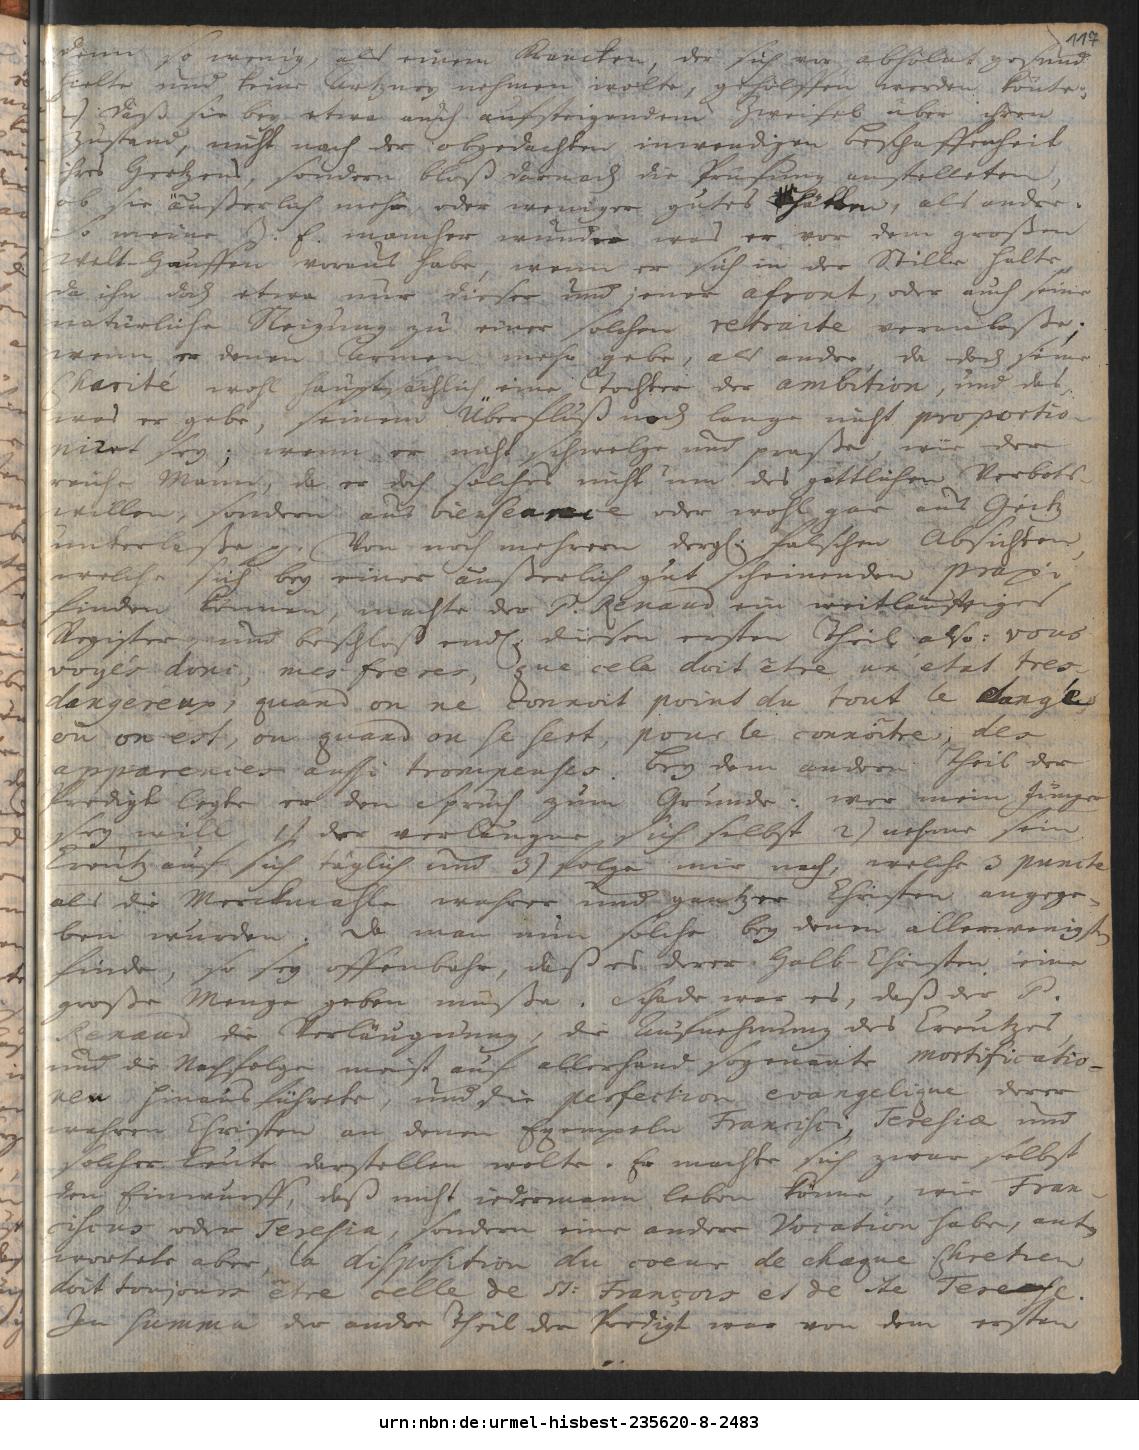 117
denn so wenig, als einem Krancken, der sich vor absolut gesund
hielte und keine Artzney nehmen wolte, geholffen werden könte;
2) daß sie bey etwa auch aufsteigendem Zweifel über ihren
Zustand, nicht nach der obgedachten inwendigen Beschaffenheit
ihres Hertzens, sondern bloß darnach die Prüfung anstelleten,
ob sie äußerlich mehr oder weniger gutes hätten, als andre.
So meine z. E. mancher wunder was er vor dem großen
Welt-Hauffen voraus habe, wenn er sich in der Stille halte,
da ihn doch etwa nur dieser und jener afront, oder auch seine
natürliche Neigung zu einer solchen retraite veranlaße;
wenn er denen Armen mehr gebe, als andre, da doch seine
Charité wohl hauptsächlich eine Tochter der ambition, und das,
was er gebe, seinem Überfluß noch lange nicht proportio-
niret sey; wenn er nicht schwelge und praße, wie der
reiche Mann, da er doch solches nicht um des göttlichen Verbots
willen, sondern aus bienseance oder wohl gar aus Geitz
unterlaße p. Von noch mehrern dergl. falschen Absichten,
welche sich bey einer äußerlich gut scheinenden praxi
finden können, machte der P. Renaud ein weitläuftiges
Register und beschloß endl. diesen ersten Theil also: vous
voyés donc, mes freres, que cela doit être un etat tres
dangereux, quand on ne connoit point du tout le dangèr
où on est, ou quand on se sert, pour le connoître, des
apparences aussi trompeuses. Bey dem andern Theil der
Predigt legte er den Spruch zum Grunde: wer mein Jünger
seyn will, 1) der verläugne sich selbst 2) nehme sein
Creutz auf sich täglich und 3) folge mir nach, welche 3 puncte
als die Merckmahle wahrer und gantzer Christen angege-
ben wurden. Da man nun solche bey denen allerwenigsten
finde, so sey offenbahr, daß es derer Halb-Christen eine
große Menge geben müße. Schade war es, daß der P.
Renaud die Verläugnung, die Aufnehmung des Creutzes
und die Nachfolge meist auf allerhand sogenante mortificatio-
nen hinaus führete, und die perfection evangelique derer
wahren Christen an denen Exempeln Francisci, Teresiæ und
solcher Leute darstellen wolte. Er machte sich zwar selbst
den Einwurff, daß nicht iedermann leben könne, wie Fran-
ciscus oder Teresia, sondern eine andere Vocation habe, ant-
wortete aber, la disposition du coeur de chaque Chretien
doit toujours être celle de St. François et de Ste Terese.
In Summa der andre Theil der Predigt war von dem ersten
urn:nbn:de:urmel-hisbest-235620-8-2483